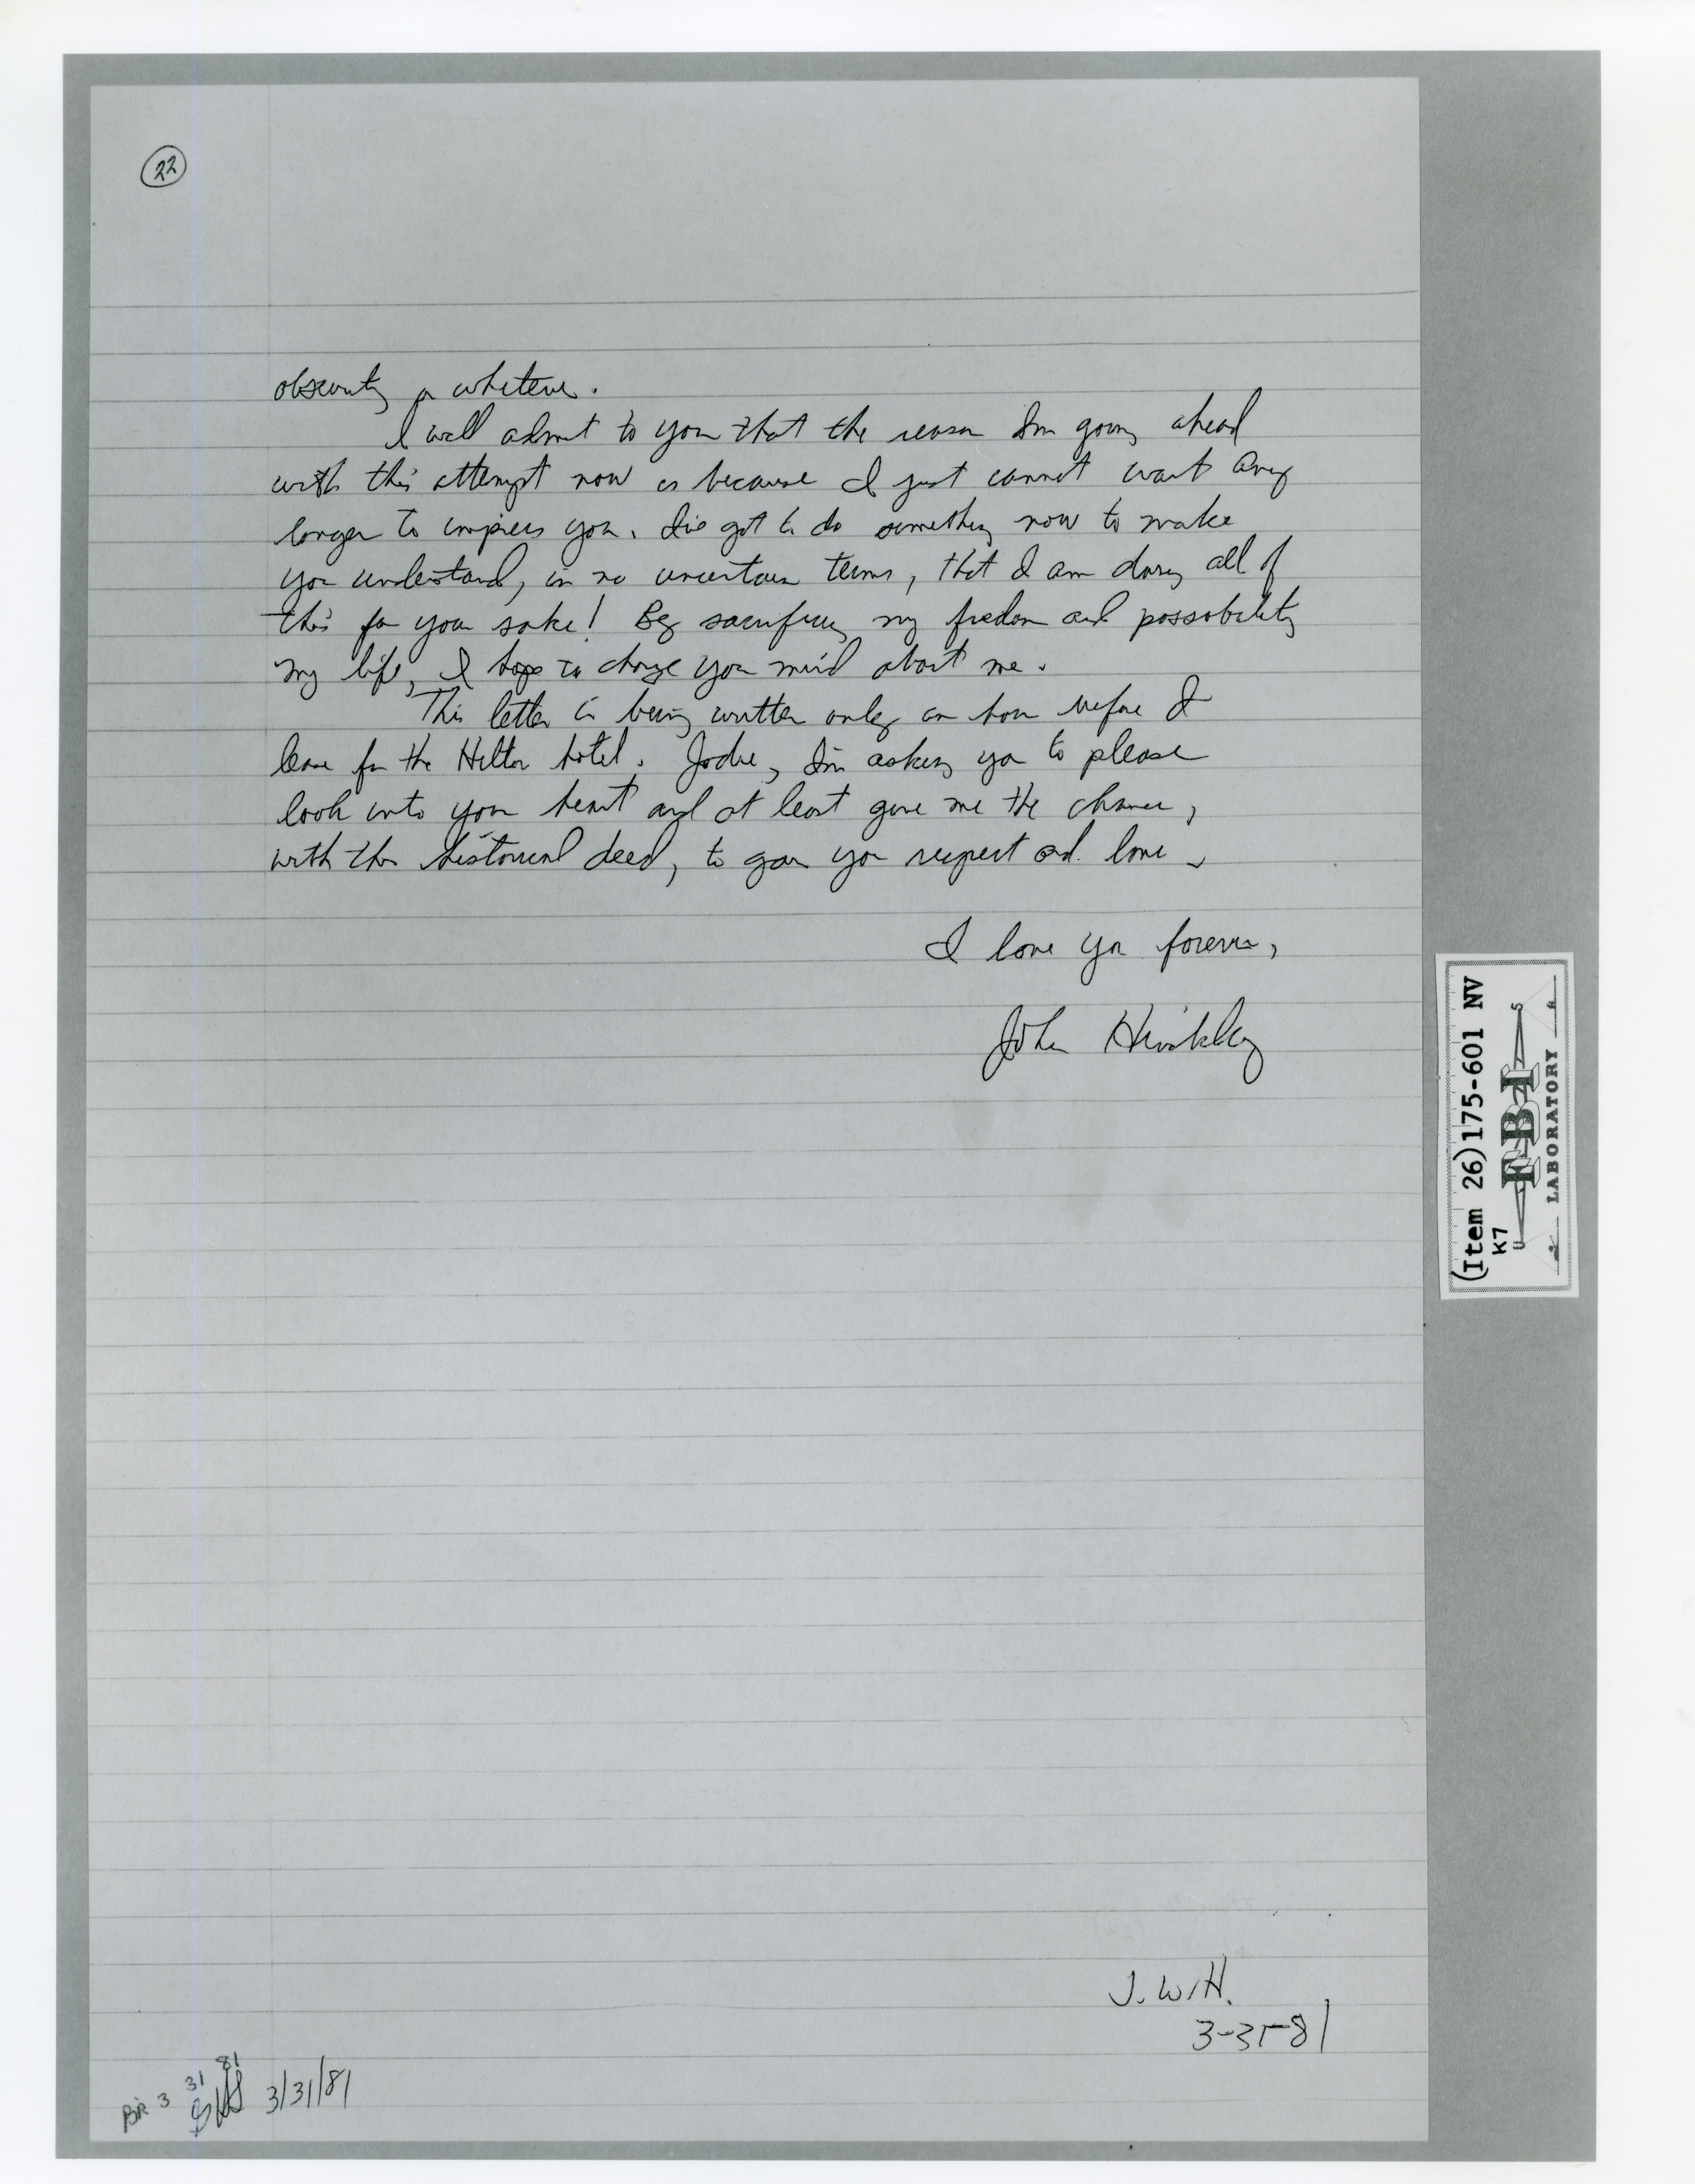 22
obscurity or whatever.
I will admit to you that the reason I'm going ahead
with this attempt now is because I just cannot wait any
longer to impress you. I've got to do something now to make
you understand, in no uncertain terms, that I am doing all of
this for your sake! By sacrificing my freedom and possobility
my life, I hope to change your mind about me.
This letter is being written only an hour before I
leave for the Hilton hotel. Jodie, I'm asking you to please
look into your heart and at least give me the chance,
with this historical deed, to gain your respect and love.
I love you forever,
John Hinckley
(Item 26)175-601 NV
K7
FBI
LABORATORY
J.W.H.
3-31-81
3 31 81
3/31/81